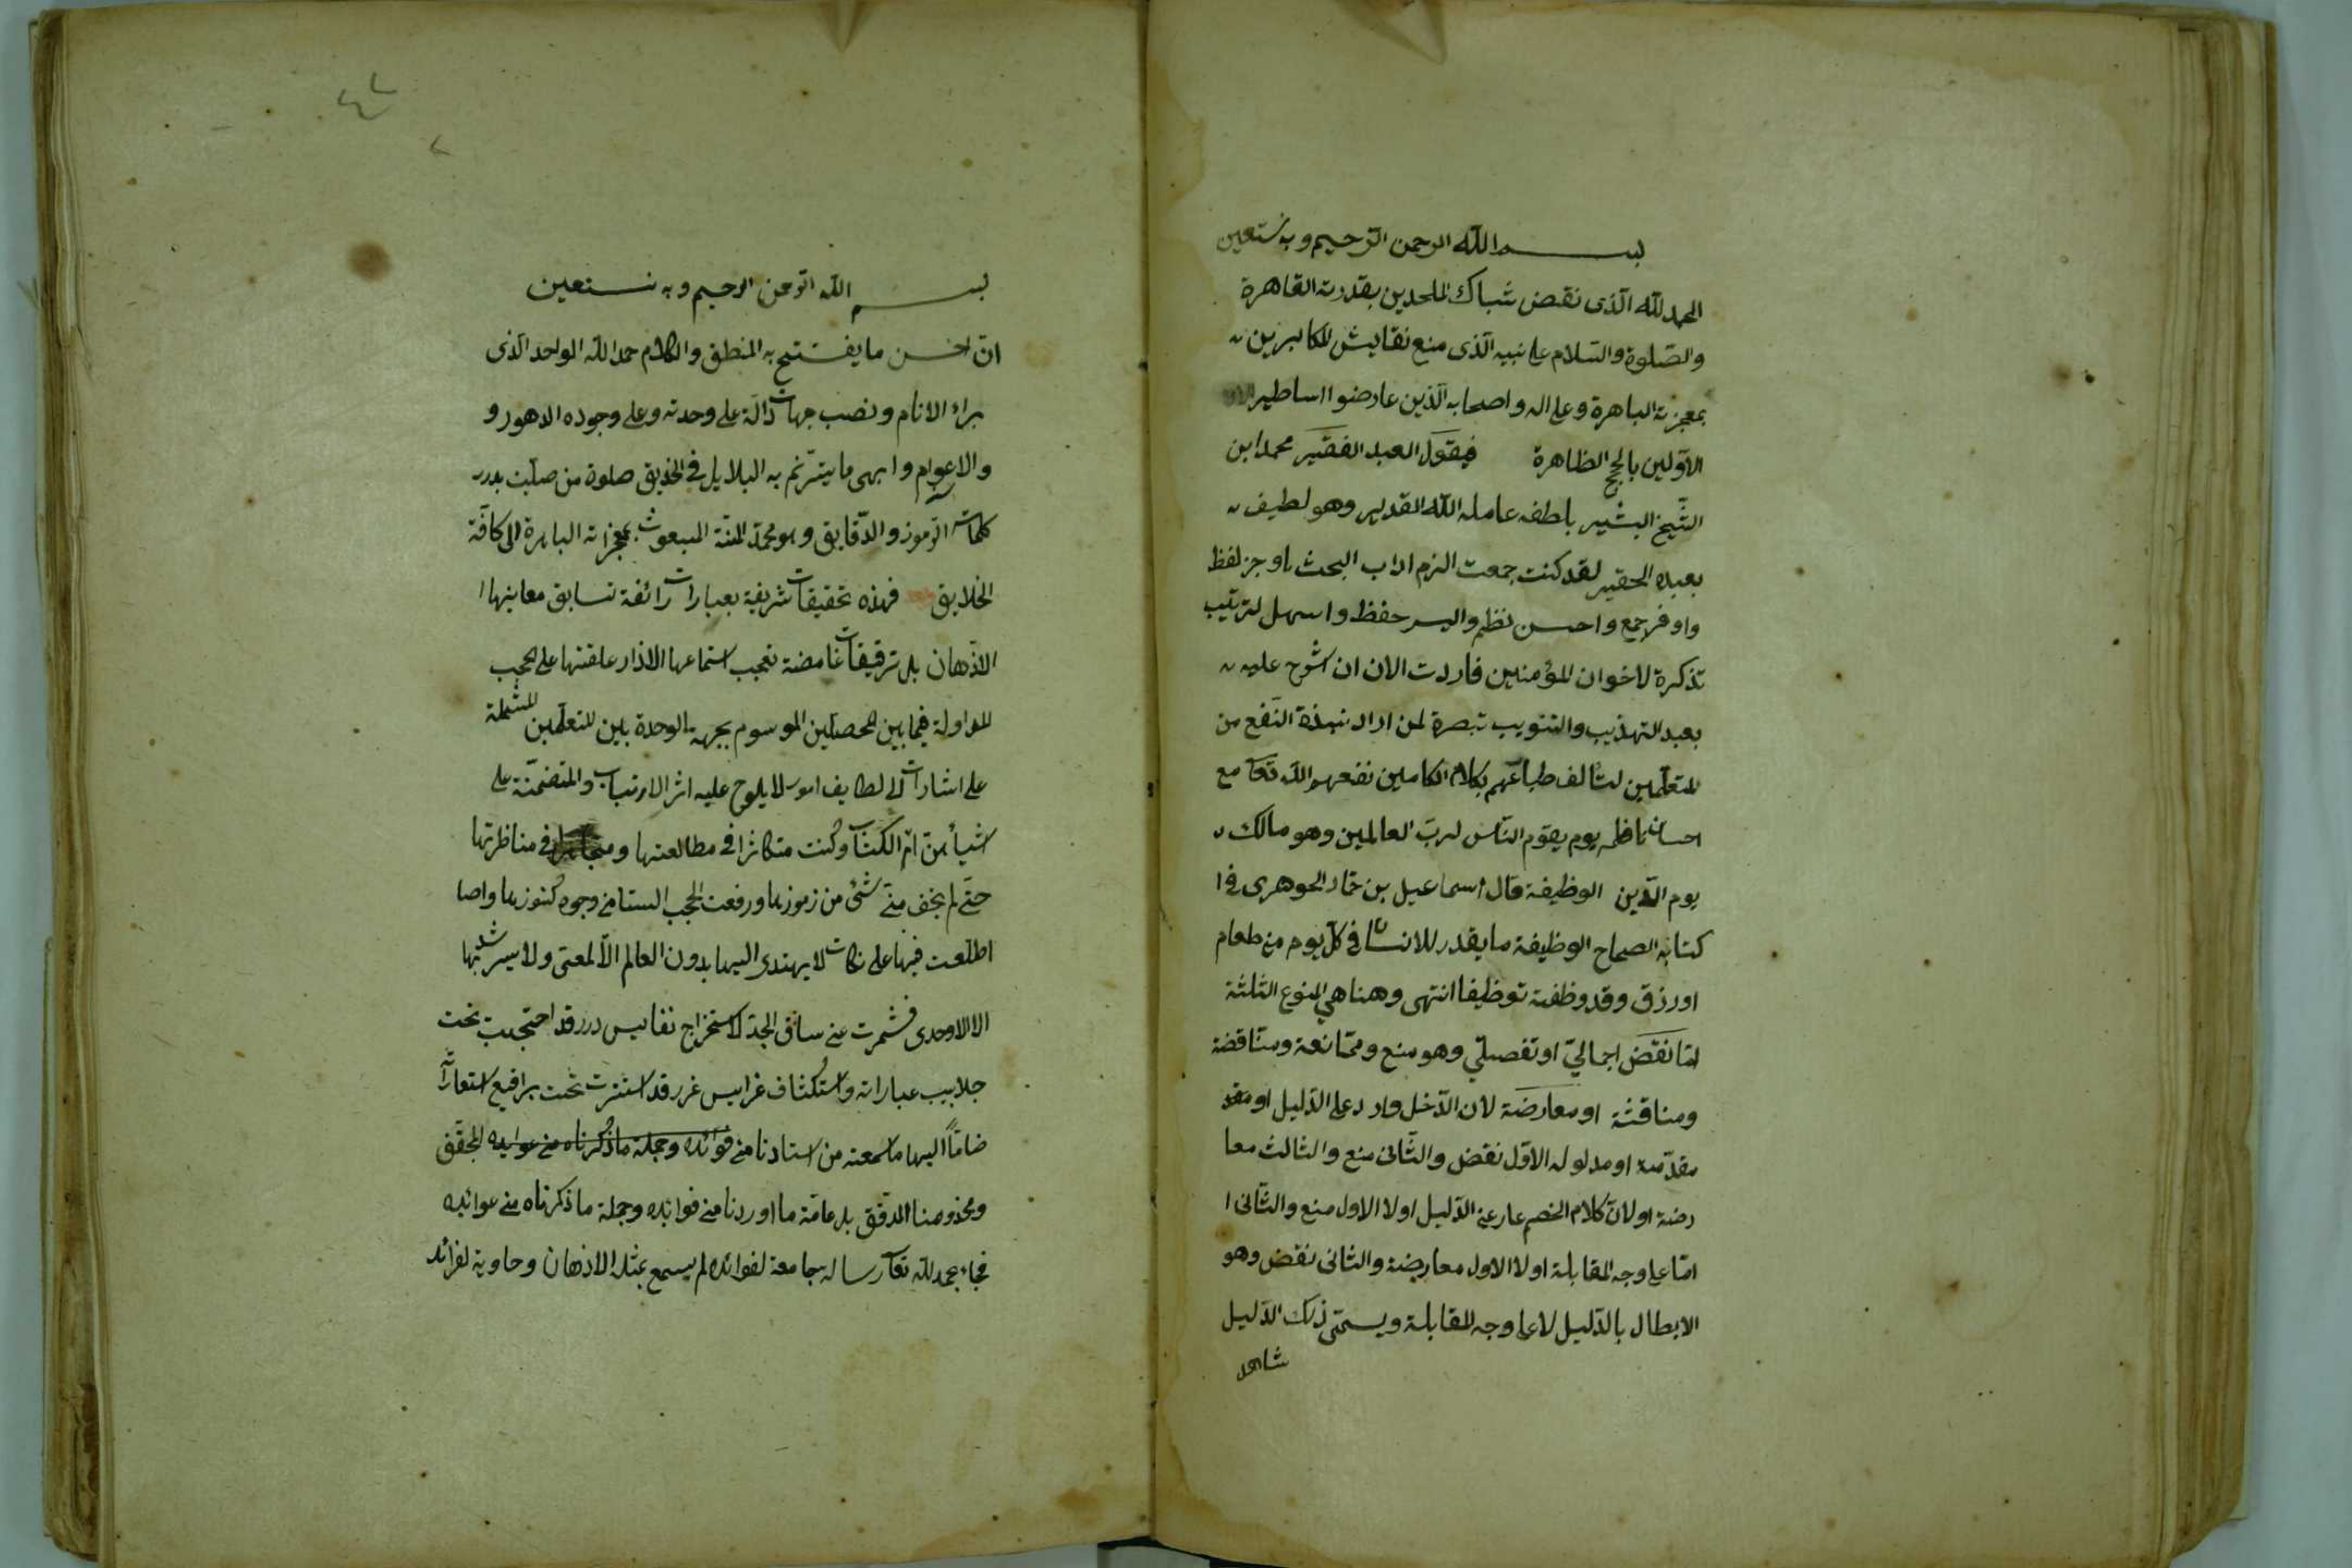 بسم الله الرحمن الرحيم وبه نستعين
الحمد لله الذى نقض شباك الملحدين بقدرته القاهرة
والصلوة والسلام على نبيه الذى منع نقايش المكابرين
بمعجزته الباهرة وعلى اله واصحابه الذين عارضوا اساطير
الاولين بالحجج الظاهرة فيقول العبد الفقير محمد ابن
الشيخ البشير بلطفه عامله الله القدير وهو لطيف
بعبده الحقير لقد كنت جمعت الزم اداب البحث باوجز لفظ
واوفر جمع واحسن نظم وايسر حفظ واسهل ترتيب
تذكرة لاخوان المؤمنين فاردت الان ان اشرح عليه
بعبد التهذيب والتنويب تبصرة لمن اراد نبذة النفع من
المتعلمين لتألف طباعهم بكلام الكاملين نفعهم الله تعا مع
احسان ناظمه يوم يقوم الناس لرب العالمين وهو مالك
يوم الدين الوظيفة قال اسماعيل بن حماد الجوهرى فى
كتابه الصحاح الوظيفة ما يقدر للانسان فى كل يوم من طعام
او رزق وقد وظفته توظيفا انتهى وهنا هي المنوع الثلثة
اما نقض اجمالي او تفصيلي وهو منع وممانعة ومناقضة
ومناقشة او معارضة لان الدخل وارد على الدليل او
مقدمته او مدلوله الاول نقض والثانى منع والثالث معا
رضة او لان كلام الخصم عار عن الدليل اولا الاول منع والثانى ا
اما على وجه المقابلة اولا الاول معارضة والثانى نقض وهو
الابطال بالدليل لا على وجه المقابلة ويسمى ذلك الدليل
شاهد
بسم الله الرحمن الرحيم وبه نستعين
ان احسن ما يفتتح به المنطق والكلام حمد الله الواحد الذى
براء الانام ونصب جهات دالة على وحدته وعلى وجوده الدهور و
والاعوام وابهى ما يترنم به البلابل فى صلوة من صلبت بدرر
كلماته الرموز والدقايق وهو محمد المبعوث بمعجزاته الباهرة الى كافة
الخلايق فهذه تحقيقات شريفة بعبارات رائقة تسابق معانيها ا
الاذهان بل ترقيقات غامضة تعجب استماعها الاذان علقتها على
المداولة فيما بين المحصلين الموسوم بجهة الوحدة بين المتعلمين المشتملة
على اشارات الى لطايف امور لا يلوح عليه اثر الارتياب والمتضمنة على
اشياء من ام الكتاب وكنت متكاثرا فى مطالعتها فى مناظرتها
حتى لم يخف منى شئ من رموزها ورفعت الحجب الستا من وجوه كنوزها واصا
اطلعت فيها على نكات لا يهتدى اليها بدون العالم الالمعى ولا يسر شد بها
الا الاوحدى فشمرت عن ساق الجد لاستخراج نفايس درر قد احتجبت تحت
جلابيب عباراته واستكشاف عرايس غرر قد استترت تحت براقيع استعاراته
ضاما اليها ما سمعته من استادنا من فوائده وجملة ما ذكرناه من عوايده المحقق
ومخدومنا المدقق بل عامة ما اوردنا من فوائده وجملة ما ذكرناه من عوائده
فجاء بحمد لله تعا رساله جامعة لفوائد لم يسمع بمثله الاذهان وحاوية لفرائد